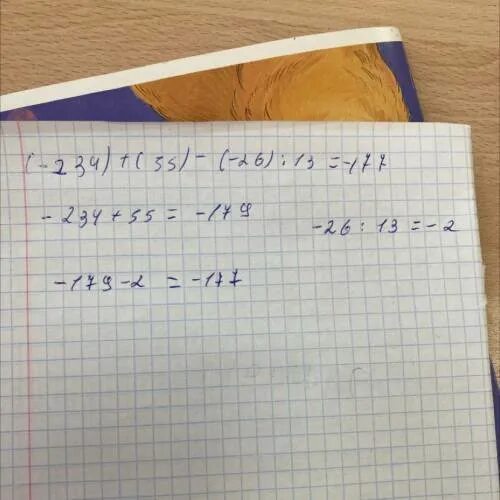 (-234) + (55) - (-26) : 13 = -177
-234 + 55 = -179
-26 : 13 = -2
-179 - 2 = -177